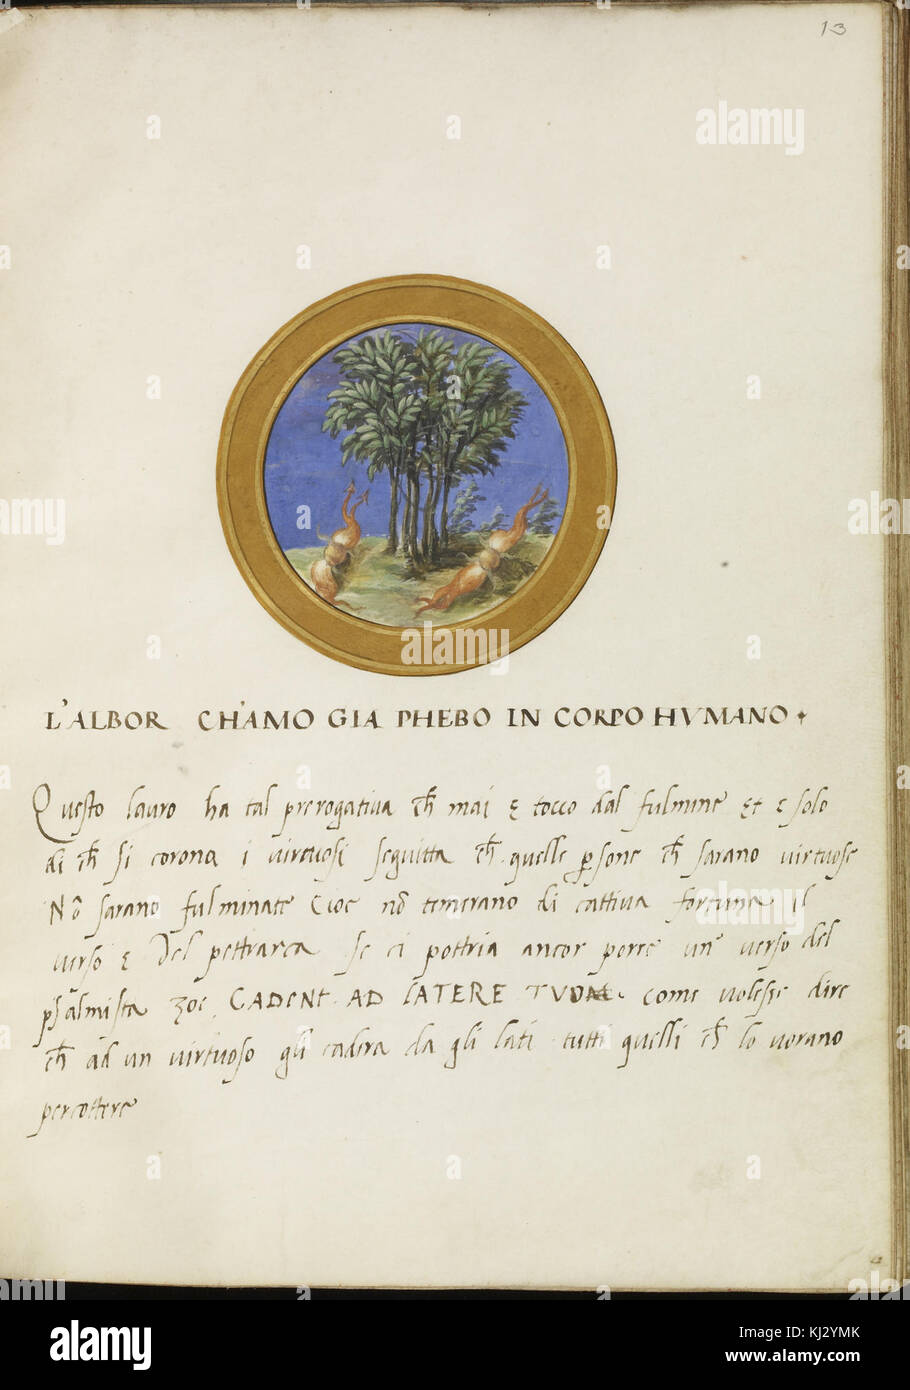 13
L'ALBOR CH'AMO GIA PHEBO IN CORPO HVMANO
Questo lauro ha tal prerogativa ch̄ mai e tocco dal fulmine Et e solo
di ch̄ si corona i virtuosi seguitta ch̄ quelle p̱sone ch̄ sarano virtuose
Nō sarano fulminate Cioe nō temerano di cattiva fortuna il
verso e Del pettrarca se ci pottria ancor porre un verso del
psalmista CADENT AD LATERE TVOM. come volesse dire
ch̄ ad un virtuoso gli cadera da gli lati tutti quelli ch̄ lo vorano
percottere
alamy
alamy
alamy
Image ID: KJ2YMK
www.alamy.com